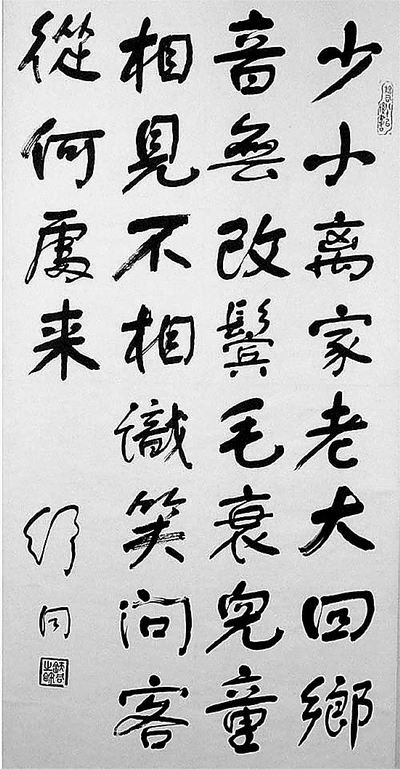 少小离家老大回鄉
音無改鬓毛衰兒童
相見不相識笑问客
從何處来
舒同